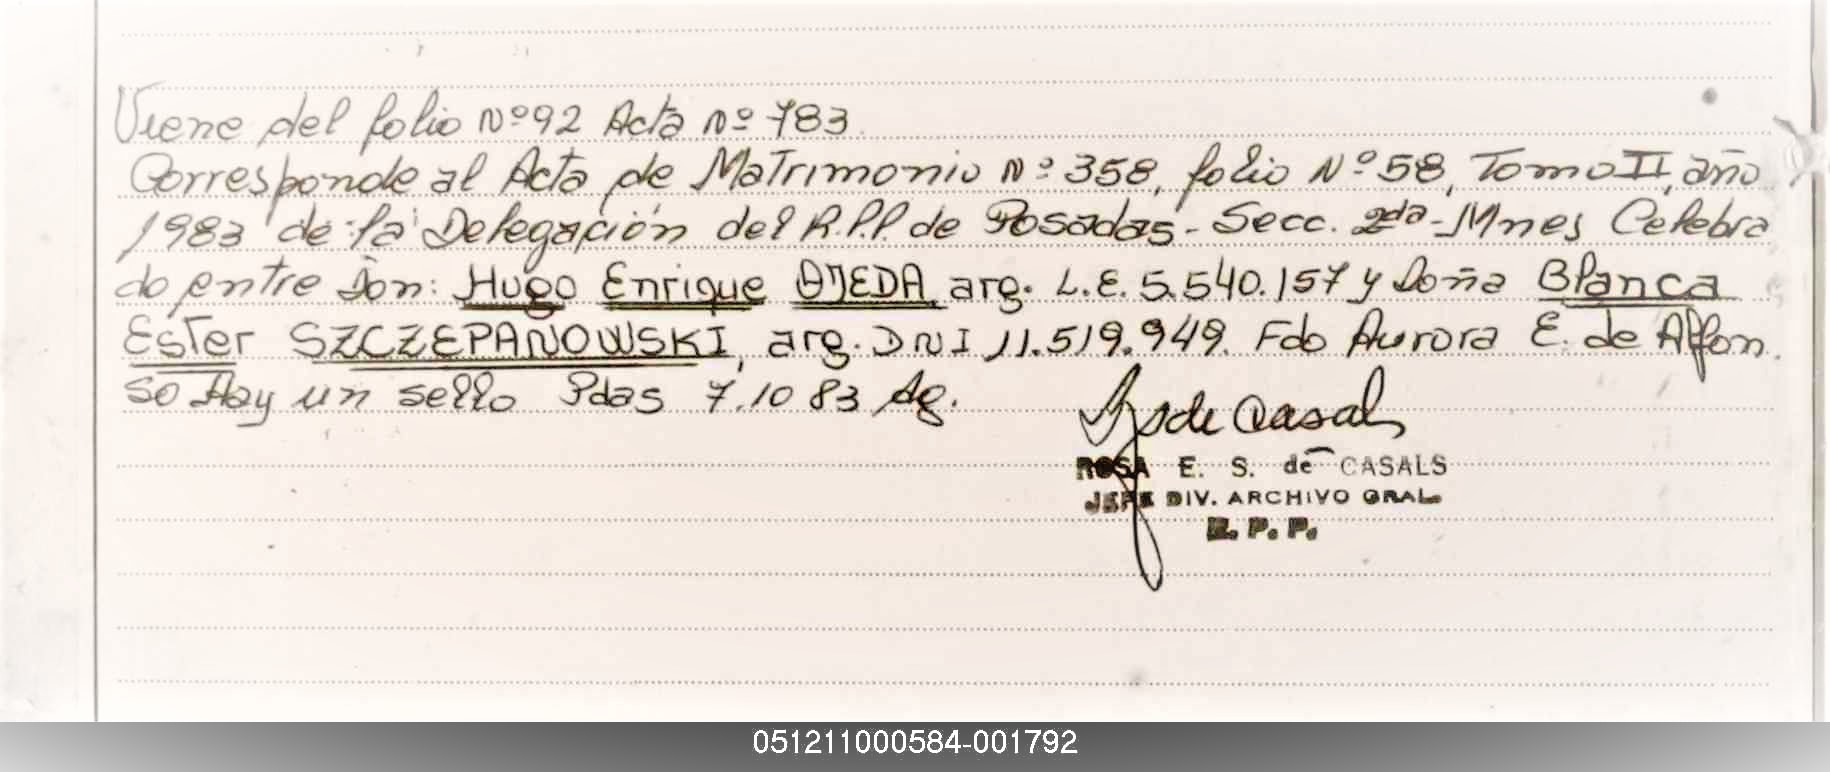 Viene del folio Nº 92 Acta Nº 783
Corresponde al Acta de Matrimonio Nº 358, folio Nº 58, Tomo II, año
1983 de la Delegación del R.P.P. de Posadas - Secc. 2da - Mnes Celebra
do entre Don: Hugo Enrique OJEDA arg. L.E. 5.540.157 y Doña Blanca
Ester SZCZEPANOWSKI, arg. DNI 11.519.949. Fdo Aurora E. de Alfon
so Hay un sello Pdas 7.10 83 Ag.
de Casals
ROSA E. S. de CASALS
JEFE DIV. ARCHIVO GRAL.
R. P. P.
051211000584-001792